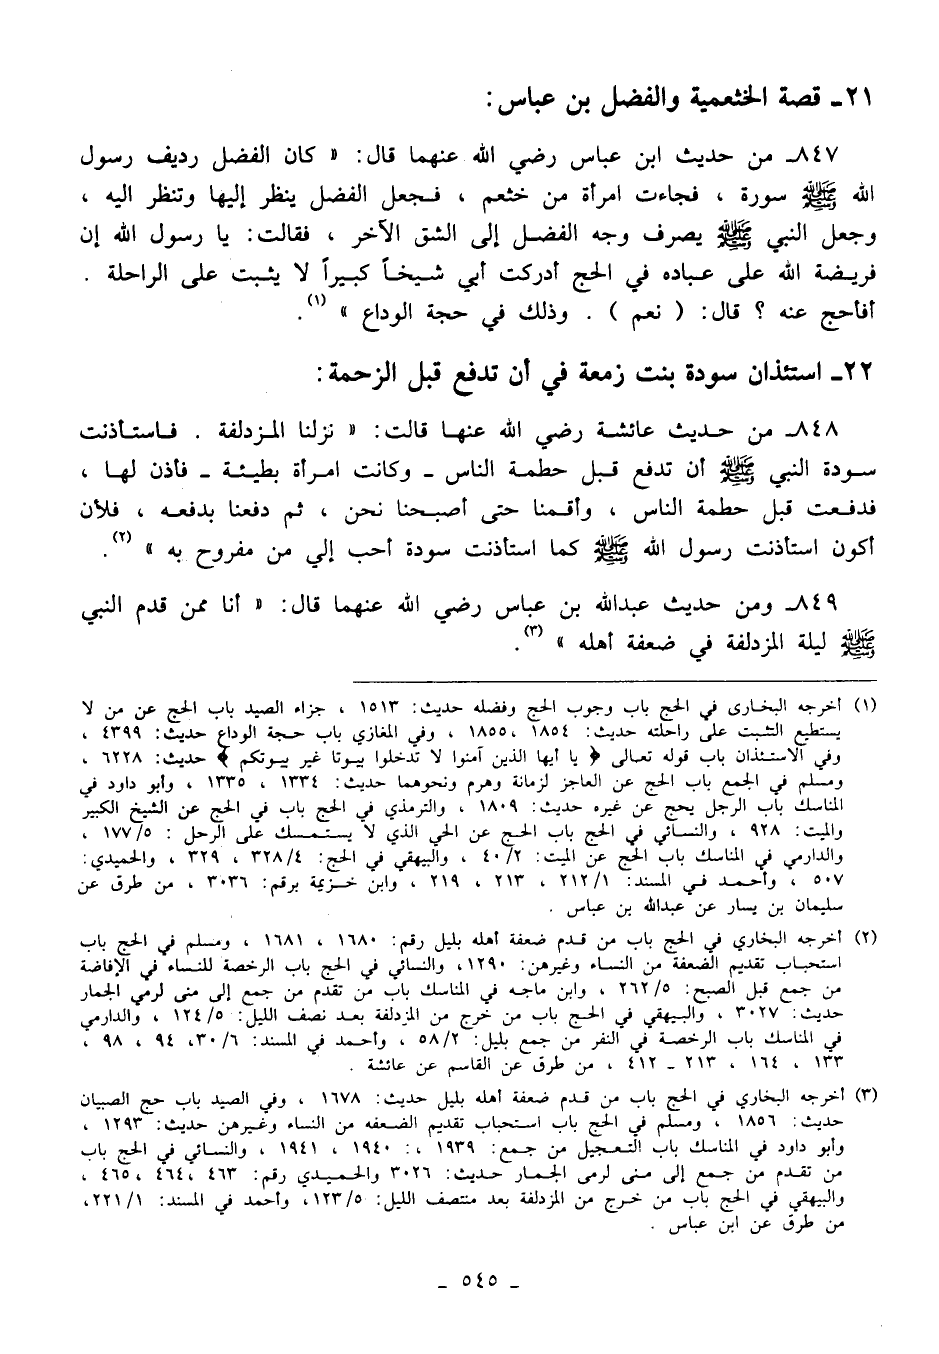 ٢١ـ قصة الخثعمية والفضل بن عباس :
٨٤٧ـ من حديث ابن عباس رضي الله عنهما قال: « كان الفضل رديف رسول
الله ﷺ سورة ، فجاءت امرأة من خثعم ، فجعل الفضل ينظر إليها وتنظر اليه ،
وجعل النبي ﷺ يصرف وجه الفضل إلى الشق الآخر ، فقالت: يا رسول الله إن
فريضة الله على عباده في الحج أدركت أبي شيخاً كبيراً لا يثبت على الراحلة .
أفأحج عنه ؟ قال: ( نعم ) . وذلك في حجة الوداع » (١).
٢٢ـ استئذان سودة بنت زمعة في أن تدفع قبل الزحمة :
٨٤٨ـ من حديث عائشة رضي الله عنها قالت: « نزلنا المزدلفة . فاستأذنت
سودة النبي ﷺ أن تدفع قبل حطمة الناس ـ وكانت امرأة بطيئة ـ فأذن لها ،
فدفعت قبل حطمة الناس ، وأقمنا حتى أصبحنا نحن ، ثم دفعنا بدفعه ، فلأن
أكون استأذنت رسول الله ﷺ كما استأذنت سودة أحب إلي من مفروح به » (٢).
٨٤٩ـ ومن حديث عبدالله بن عباس رضي الله عنهما قال: « أنا ممن قدم النبي
ﷺ ليلة المزدلفة في ضعفة أهله » (٣).
(١) أخرجه البخارى في الحج باب وجوب الحج وفضله حديث: ١٥١٣ ، جزاء الصيد باب الحج عن من لا
يستطيع الثبت على راحلته حديث: ١٨٥٤ ،١٨٥٥ ، وفي المغازي باب حجة الوداع حديث: ٤٣٩٩ ،
وفي الاستئذان باب قوله تعالى ﴿ يا أيها الذين آمنوا لا تدخلوا بيوتا غير بيوتكم ﴾ حديث: ٦٢٢٨ ،
ومسلم في الجمع باب الحج عن العاجز لزمانة وهرم ونحوهما حديث: ١٣٣٤ ، ١٣٣٥ ، وأبو داود في
المناسك باب الرجل يحج عن غيره حديث: ١٨٠٩ ، والترمذي في الحج باب في الحج عن الشيخ الكبير
والميت: ٩٢٨ ، والنسائي في الحج باب الحج عن الحي الذي لا يستمسك على الرحل : ١٧٧/٥ ،
والدارمي في المناسك باب الحج عن الميت: ٤٠/٢ ، والبيهقي في الحج: ٣٢٨/٤ ، ٣٢٩ ، والحميدي:
٥٠٧ ، وأحمد في المسند: ٢١٢/١ ، ٢١٣ ، ٢١٩ ، وابن خزيمة برقم: ٣٠٣٦ ، من طرق عن
سليمان بن يسار عن عبدالله بن عباس .
(٢) أخرجه البخاري في الحج باب من قدم ضعفة أهله بليل رقم: ١٦٨٠ ، ١٦٨١ ، ومسلم في الحج باب
استحباب تقديم الضعفة من النساء وغيرهن: ١٢٩٠ ، والنسائي في الحج باب الرخصة للنساء في الإفاضة
من جمع قبل الصبح: ٢٦٢/٥ ، وابن ماجه في المناسك باب من تقدم من جمع إلى منى لرمي الجمار
حديث: ٣٠٢٧ ، والبيهقي في الحج باب من خرج من المزدلفة بعد نصف الليل: ١٢٤/٥ ، والدارمي
في المناسك باب الرخصة في النفر من جمع بليل: ٥٨/٢ ، وأحمد في المسند: ٣٠/٦، ٩٤ ، ٩٨ ،
١٣٣ ، ١٦٤ ، ٢١٣ ـ ٤١٢ ، من طرق عن القاسم عن عائشة .
(٣) أخرجه البخاري في الحج باب من قدم ضعفة أهله بليل حديث: ١٦٧٨ ، وفي الصيد باب حج الصبيان
حديث: ١٨٥٦ ، ومسلم في الحج باب استحباب تقديم الضعفه من النساء وغيرهن حديث: ١٢٩٣ ،
وأبو داود في المناسك باب التعجيل من جمع: ١٩٣٩ ،: ١٩٤٠ ، ١٩٤١ ، والنسائي في الحج باب
من تقدم من جمع إلى منى لرمى الجمار حديث: ٣٠٢٦ والحميدي رقم: ٤٦٣ ،٤٦٤ ، ٤٦٥ ،
والبيهقي في الحج باب من خرج من المزدلفة بعد منتصف الليل: ١٢٣/٥، وأحمد في المسند: ٢٢١/١،
من طرق عن ابن عباس .
ـ ٥٤٥ ـ